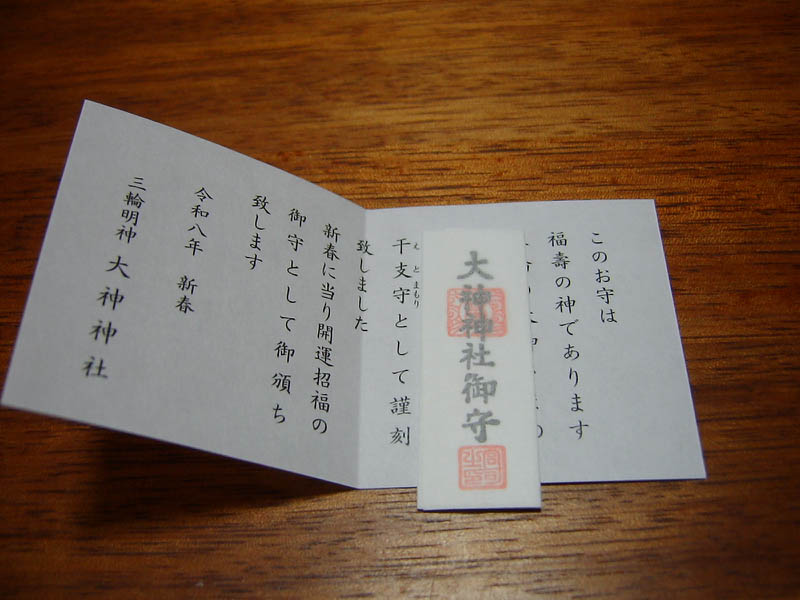 このお守は
福壽の神であります
干支守として謹刻
えとまもり
致しました
新春に当り開運招福の
御守として御頒ち
致します
令和八年 新春
三輪明神 大神神社
大神神社御守